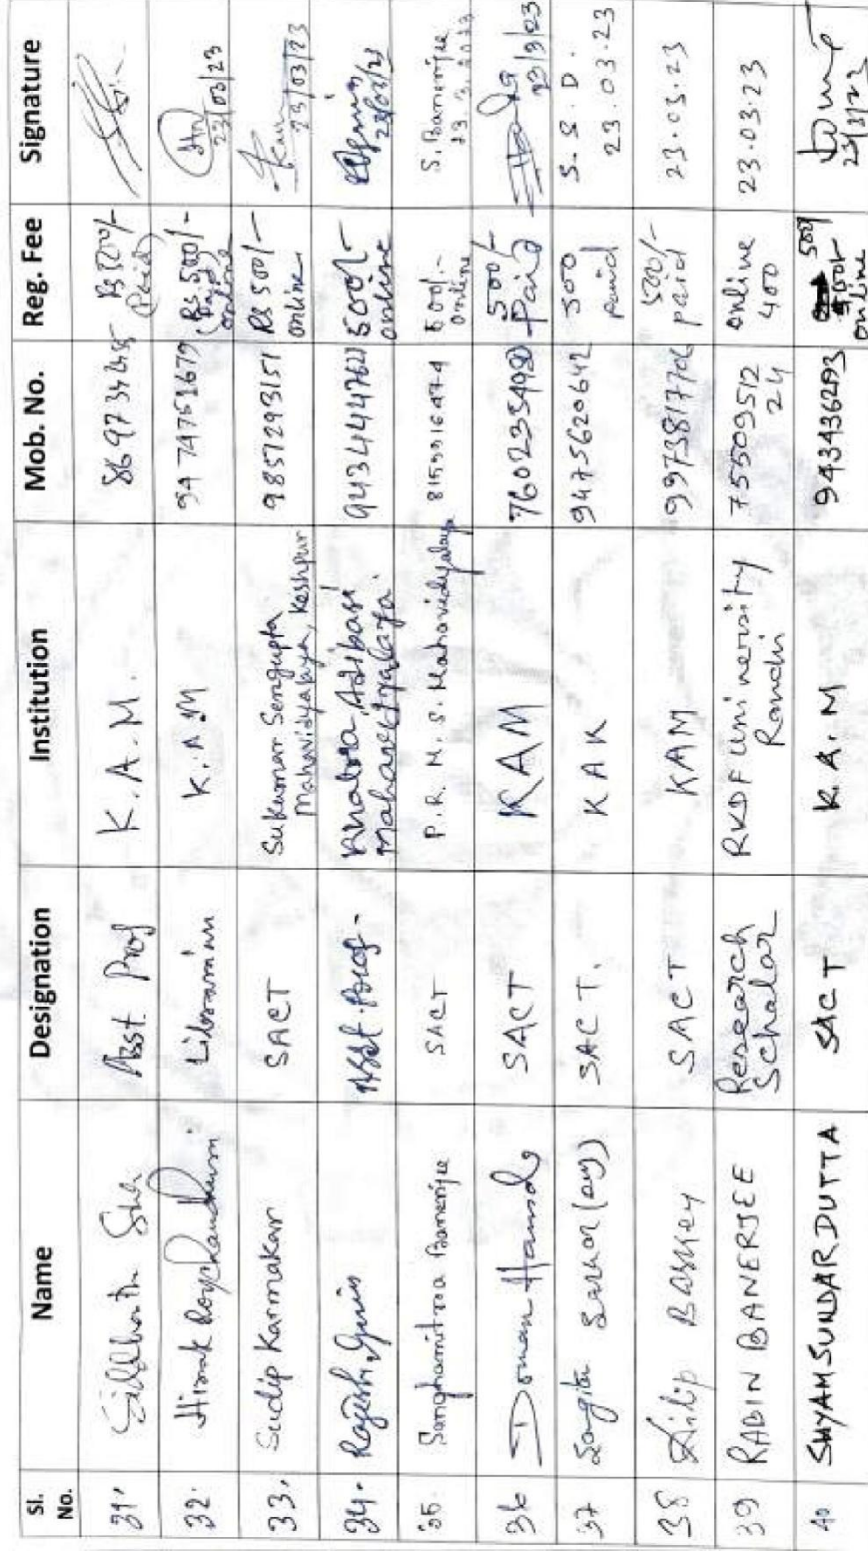 Sl. No. Name Designation Institution Mob. No. Reg. Fee Signature
31. Siddhartha Asst Prof K.A.M. Rs 500/- (Paid)
32. Hirak Roychaudhuri Librarian K.A.M 9474751679 Rs 500/- (Paid) online 23/03/23
33. Sudip Karmakar SACT Sukumar Sengupta Mahavidyalaya, Keshpur 9851293151 Rs 500/- online 23/03/23
34. Asst. Prof. Khatra Adibasi Mahavidyalaya. 9434444762 500/- online 23/03/23
35. Sanghamitra Banerjee SACT P. R. M. S. Mahavidyalaya 500/- online S. Banerjee 23.3.2023
36 Doman Hansda SACT KAM 7602354980 500/- Paid 23/3/23
37 Sangita SACT. KAK 9475620642 500 paid S. S. D. 23.03.23
38 Dilip Baskey SACT KAM 500/- paid 23.03.23
39 RABIN BANERJEE Research Schalar RKDF University Ranchi 75509512 24 online 400 23.03.23
40 SHYAM SUNDAR DUTTA SACT K.A.M 943436293 500/- online 23/3/23